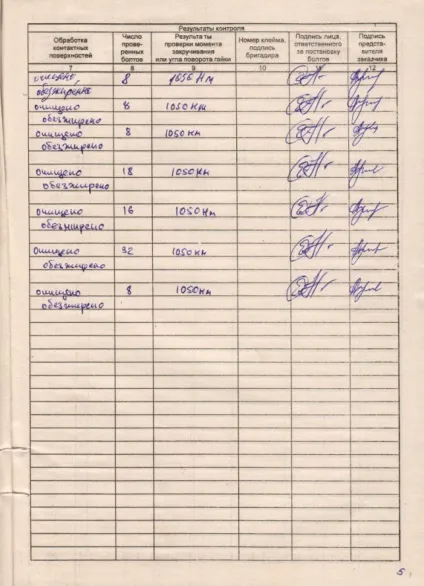 Результаты контроля
Обработка контактных поверхностей
Число прове- ренных болтов
Результаты проверки момента закручивания или угла поворота гайки
Номер клейма, подпись бригадира
Подпись лица, ответственного за постановку болтов
Подпись предста- вителя заказчика
7 8 9 10 11 12
очищено 8 1050 Нм
обезжирено
очищено 8 1050 Нм
обезжирено
очищено 8 1050 Нм
обезжирено
очищено 18 1050 Нм
обезжирено
очищено 16 1050 Нм
обезжирено
Очищено 32 1050 Нм
обезжирено
очищено 8 1050 Нм
обезжирено
5